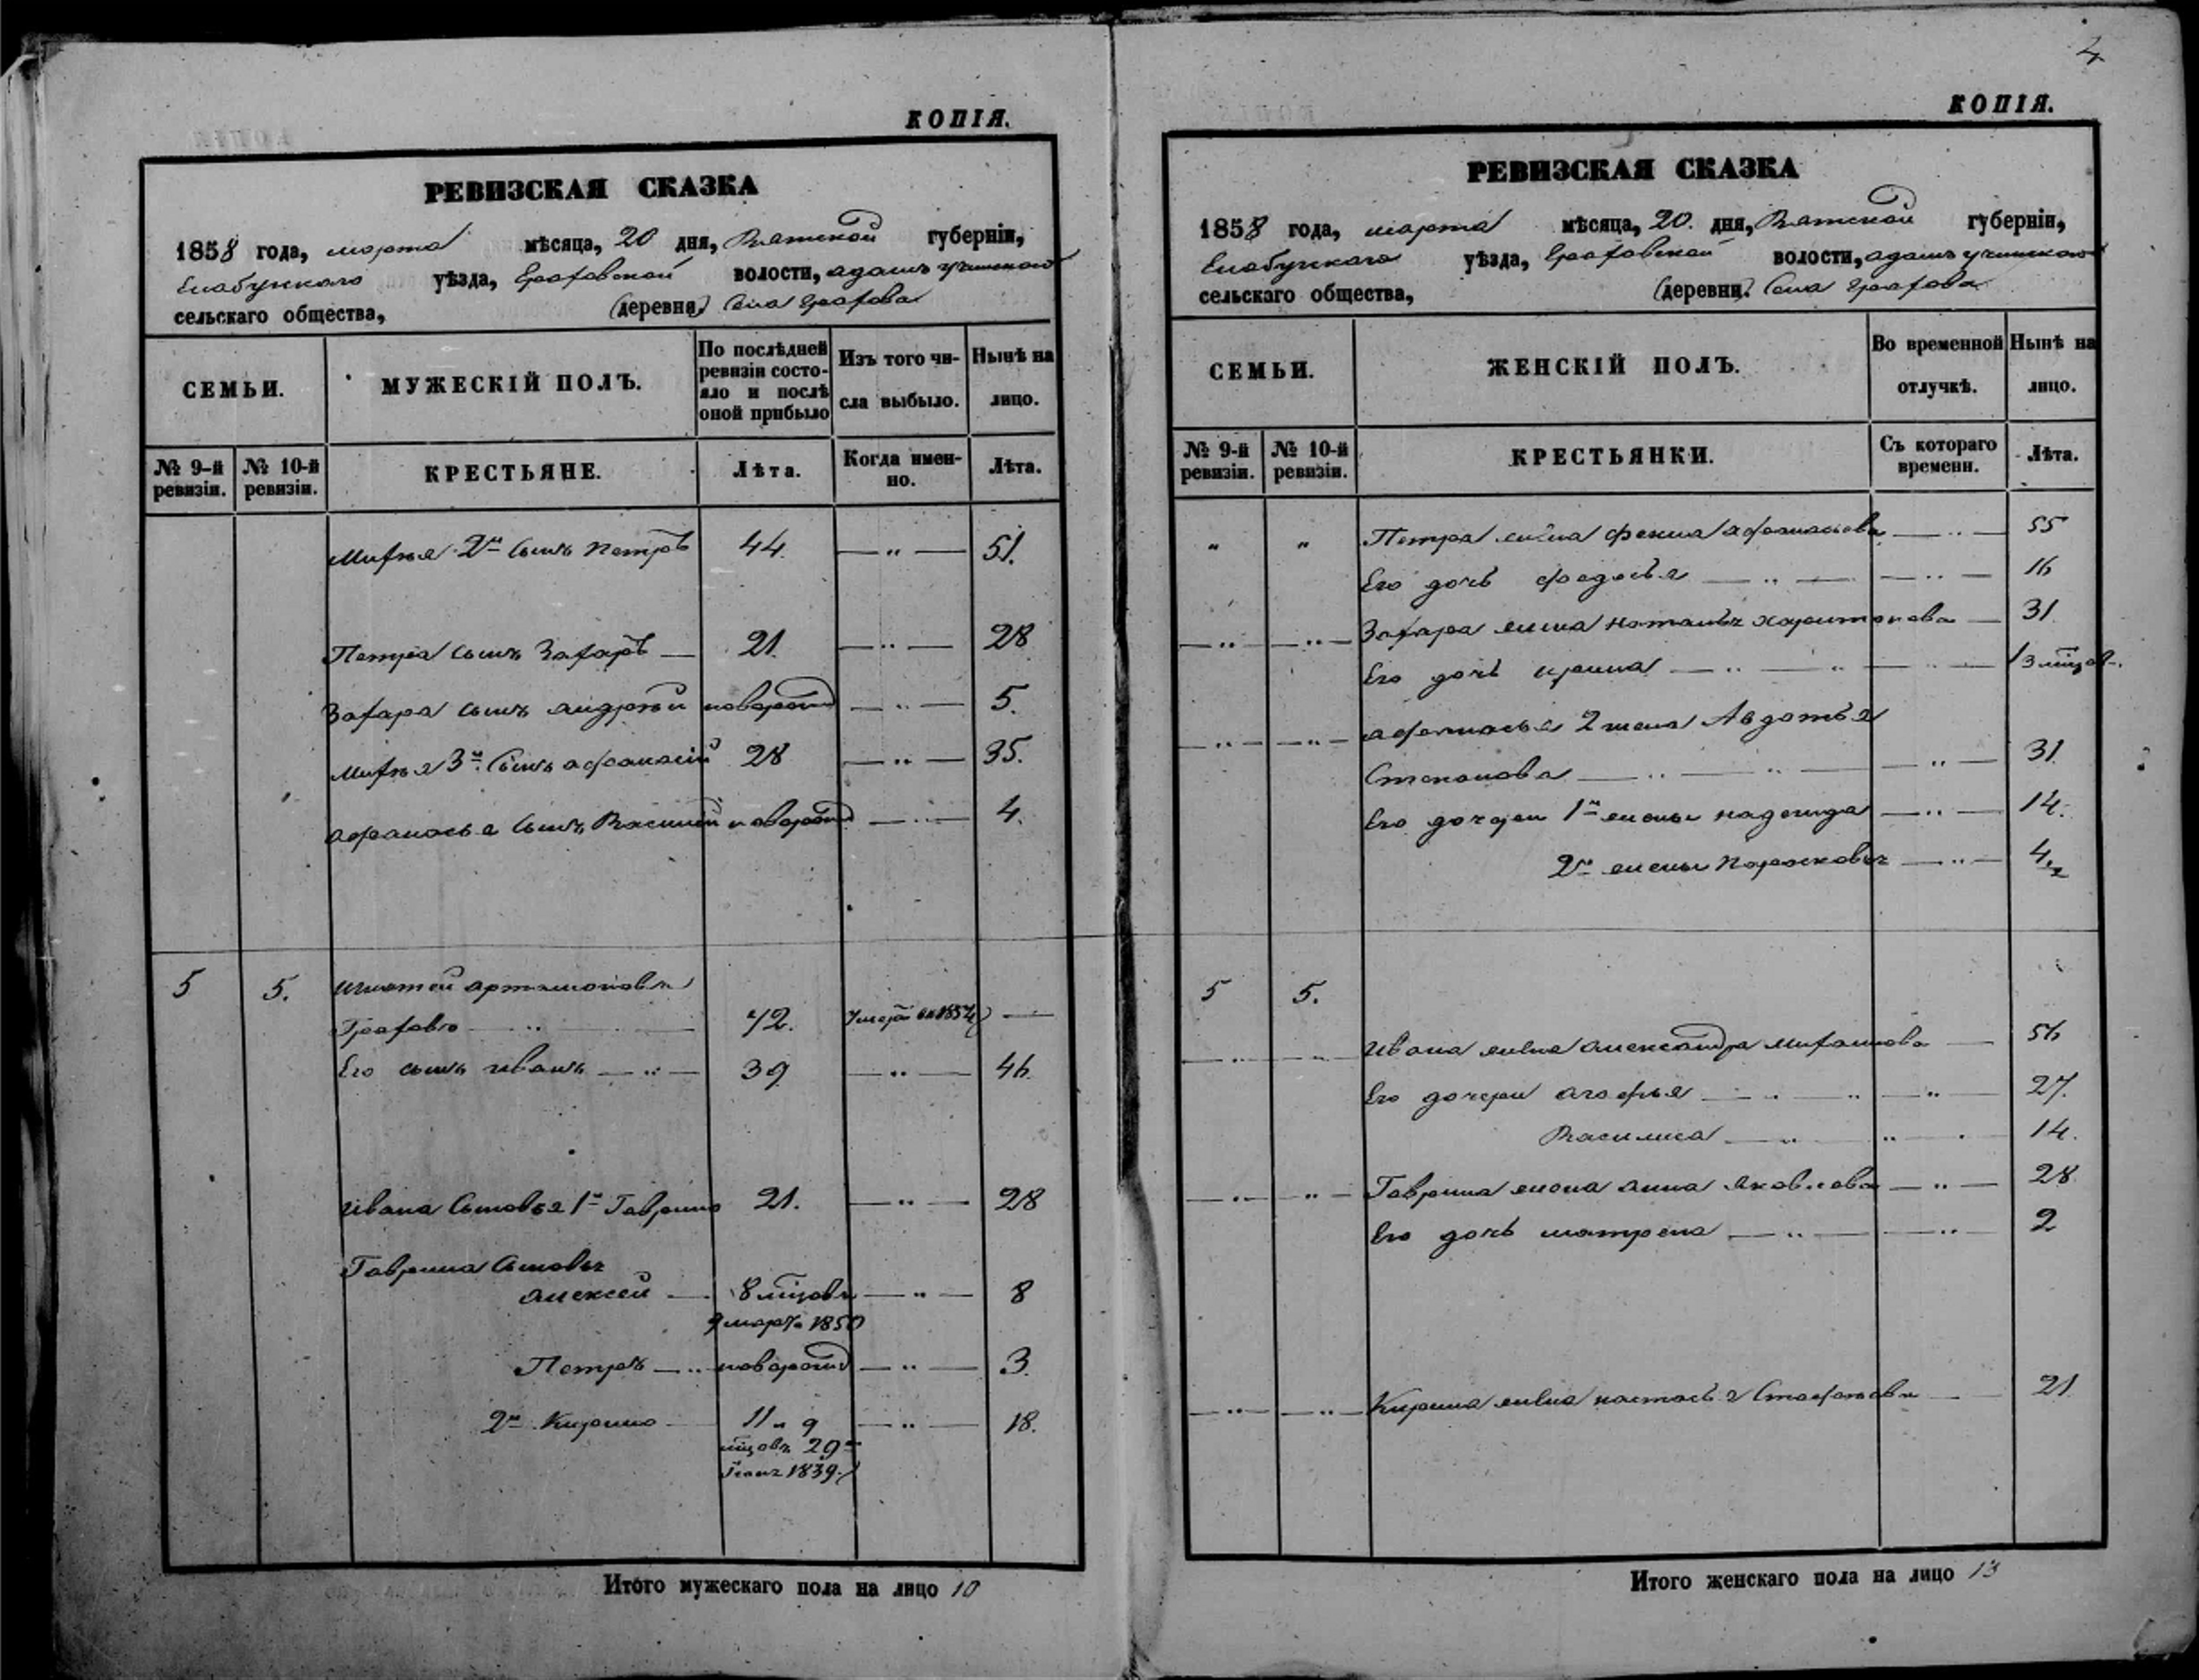 КОПІЯ.
РЕВИЗСКАЯ СКАЗКА
1858 года, марта мѣсяца, 20 дня, Вятской губерніи,
Елабужскаго уѣзда, Граховской волости, адамъ учинскаго
сельскаго общества, (деревни) Села Грахова
СЕМЬИ.
МУЖЕСКІЙ ПОЛЪ.
По послѣдней ревизіи состояло и послѣ оной прибыло
Изъ того числа выбыло.
Нынѣ на лицо.
№ 9-й ревизіи.
№ 10-й ревизіи.
КРЕСТЬЯНЕ.
Лѣта.
Когда именно.
Лѣта.
Михѣя 2й Сынъ Петръ 44. — „ — 51.
Петра сынъ Захаръ — 21. — „ — 28
Захара сынъ андрѣй новорожд — „ — 5.
Михѣя 3й Сынъ афанасій 28 — „ — 35.
афанасья Сынъ Василій новорожд — „ — 4.
5 5. игнатей артамоновъ
Граховъ — „ — 72. Умеръ въ 1854 —
Его сынъ иванъ — „ — 39 — „ — 46.
ивана Сыновья 1й Гаврило 21. — „ — 28
Гаврила Сыновья
алексей — 8 мцовъ — „ — 8
9 марта 1850
Петръ — „ новорожд — „ — 3.
2й Кирило — 11 и 9 — „ — 18.
мцовъ 29
1839.
Итого мужескаго пола на лицо 10
4
КОПІЯ.
РЕВИЗСКАЯ СКАЗКА
1858 года, марта мѣсяца, 20. дня, Вятской губерніи,
Елабужскаго уѣзда, Граховской волости, адамъ учинскаго
сельскаго общества, (деревни. Села Грахова
СЕМЬИ.
ЖЕНСКІЙ ПОЛЪ.
Во временной отлучкѣ.
Нынѣ на лицо.
№ 9-й ревизіи.
№ 10-й ревизіи.
КРЕСТЬЯНКИ.
Съ котораго времени.
Лѣта.
„ „ Петра жена фекла афанасьева — „ — 55
Его дочь федосья — „ — — „ — 16
— „ — — „ — Захара жена наталья харитонова — 31.
Его дочь ирина — „ — „ — „ — 3 мцов.
— „ — — „ — афанасья 2 жена Авдотья
Степанова — „ — „ — „ — 31.
Его дочери 1й жены надежда — „ — 14.
2й жены Парасковья — „ — 4
5 5.
— „ — — „ — ивана жена александра михайлова — 56
Его дочери агафья — „ — „ — „ — 27.
Василиса — „ — „ 14.
— „ — „ — Гаврила жена анна яковлева — „ — 28
Его дочь матрена — „ — „ — 2
— „ — — „ — Кирила жена настасья — 21
Итого женскаго пола на лицо 13